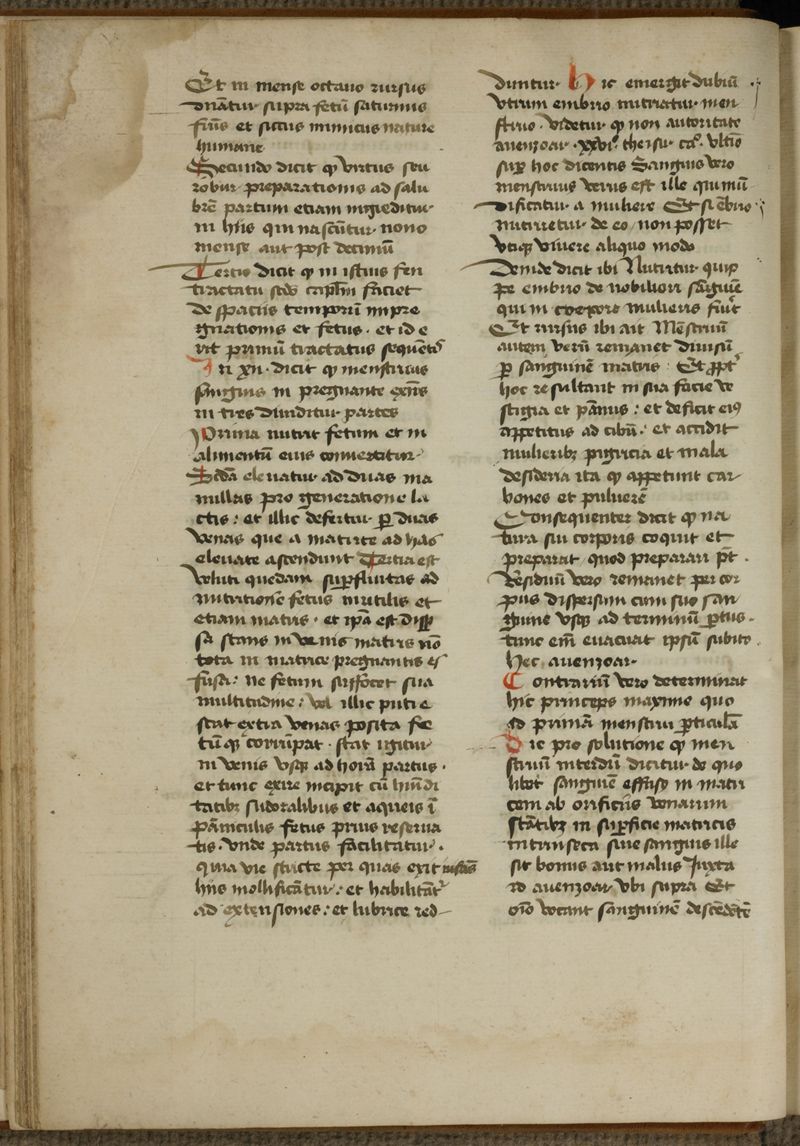 Et in mense octauo rursus
dnātur supra fetū saturnus
frius et siccus inimicus nature
humane
Secundo dicit ꝙ virtus seu
robur preparationis ad salu
brē partum etiam ingreditur
in hiis qui nascūtur nono
mense aut post decimū
Tertio dicit ꝙ in istius fen
tractatu scdo capłm faciet
de spaciis temporū impre
gnationis et fetus · et id e
rit primū tractatus sequentis
In xn · dicit ꝙ menstruus
sanguis in pregnante exn̄s
in tres diuiditur partes
Prima nutrit fetum et in
alimentū eius conuertitur
Scd̄a eleuatur ad duas ma
millas pro generatione la
ctis : et illic defertur ꝑ duas
venas que a matrice ad has
eleuate ascendunt Tertia est
veluti quedam suꝑfluitas ad
nutritionē fetus inutilis et
etiam matris · et ip̄a est disper
sa stans in venis matris nō
tota in matrice pregnantis es
fusa : ne fetum suffocet sua
multitudine : vel illic putre
scat extra venas posita fe
tūqꝫ corrūpat · stat igitur
in venis vsqꝫ ad horā partus ·
et tunc exire incipit cū humidi
tatibꝫ sudoralibus et aqueis ī
pāniculis fetus prius reserua
tis · vnde partus facilitatur ·
quia vie stricte per quas exit infans
hiis mollificātur : et habilitāt᷑
ad extensiones : et lubrice red
duntur · Hic emergit dubiū
vtrum embrio nutriatur men
struo · videtur ꝙ non autoritate
auenzoar · xxvi · theisir · ca · vltio
suꝑ hoc dicentis Sanguis vero
menstruus verus est ille qui mū
dificatur a muliere Et si ēbrio
nutriretur de eo non posset
vtiqꝫ viuere aliquo modo
Deinde dicit ibi Nutritur quip
pe embrio de nobiliori sāguine
qui in corpore mulieris fuit
Et rursus ibi ait Mēstruū
autem verū remanet diuisū
ꝑ sanguinē matris Et ꝓpt᷑
hoc resultant in sua facie ve
stigia et pānus : et deficit eiꝰ
appetitus ad cibū : et accidit
mulieribꝫ pigricia et mala
desideria ita ꝙ appetunt car
bones et puluerē
Consequenter dicit ꝙ na
tura sui corporis coquit et
preparat quod preparari pt̄ ·
Residuū vero remanet per cor
pus dispersum cum suo san
guine vsqꝫ ad terminū ꝑtus ·
tunc em̄ euacuat ipsū subito
hec auenzoar ·
Contrariū vero determinat
hic princeps maxime quo
ad primā menstrui ꝑticulā
Dic pro solutione ꝙ men
struū interdū dicitur de quo
libet sanguine effuso in matri
cem ab orificiis venarum
stātibꝫ in suꝑficie matricis
intrinseca siue sanguis ille
sit bonus aut malus Juxta
id auenzoar vbi supra Et
oīo vocant sanguinē descēdētē